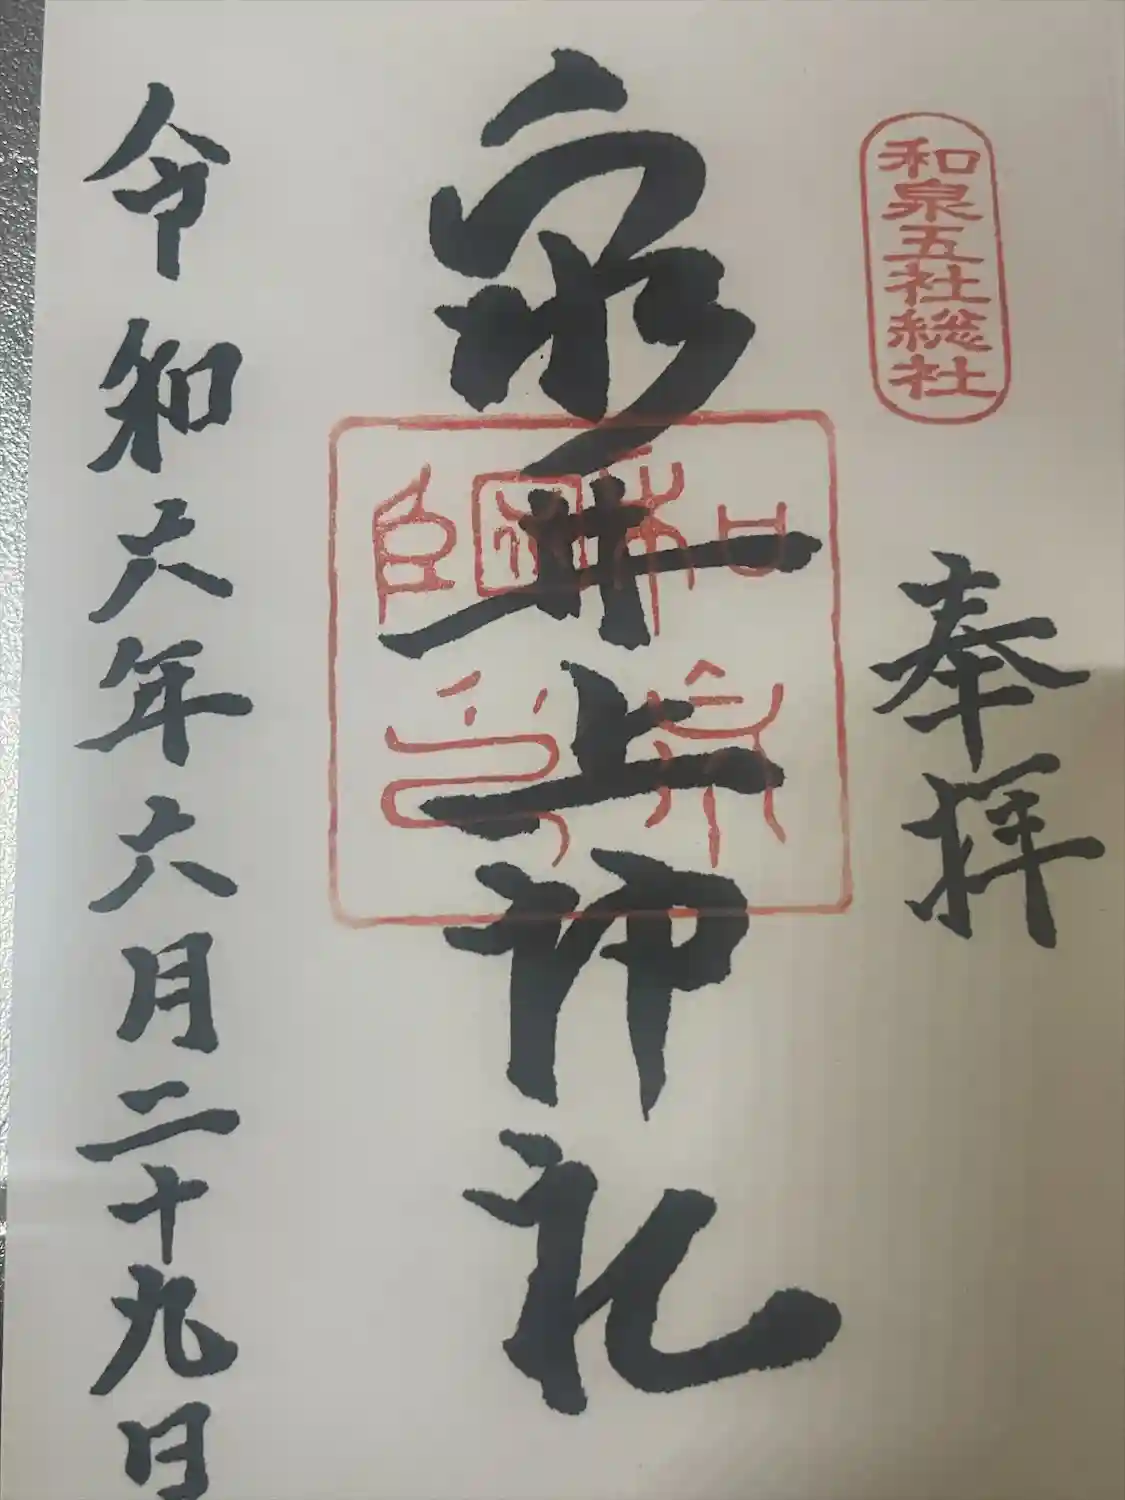 和泉五社総社
奉拝
泉井上神社
和泉国師印
令和六年六月二十九日